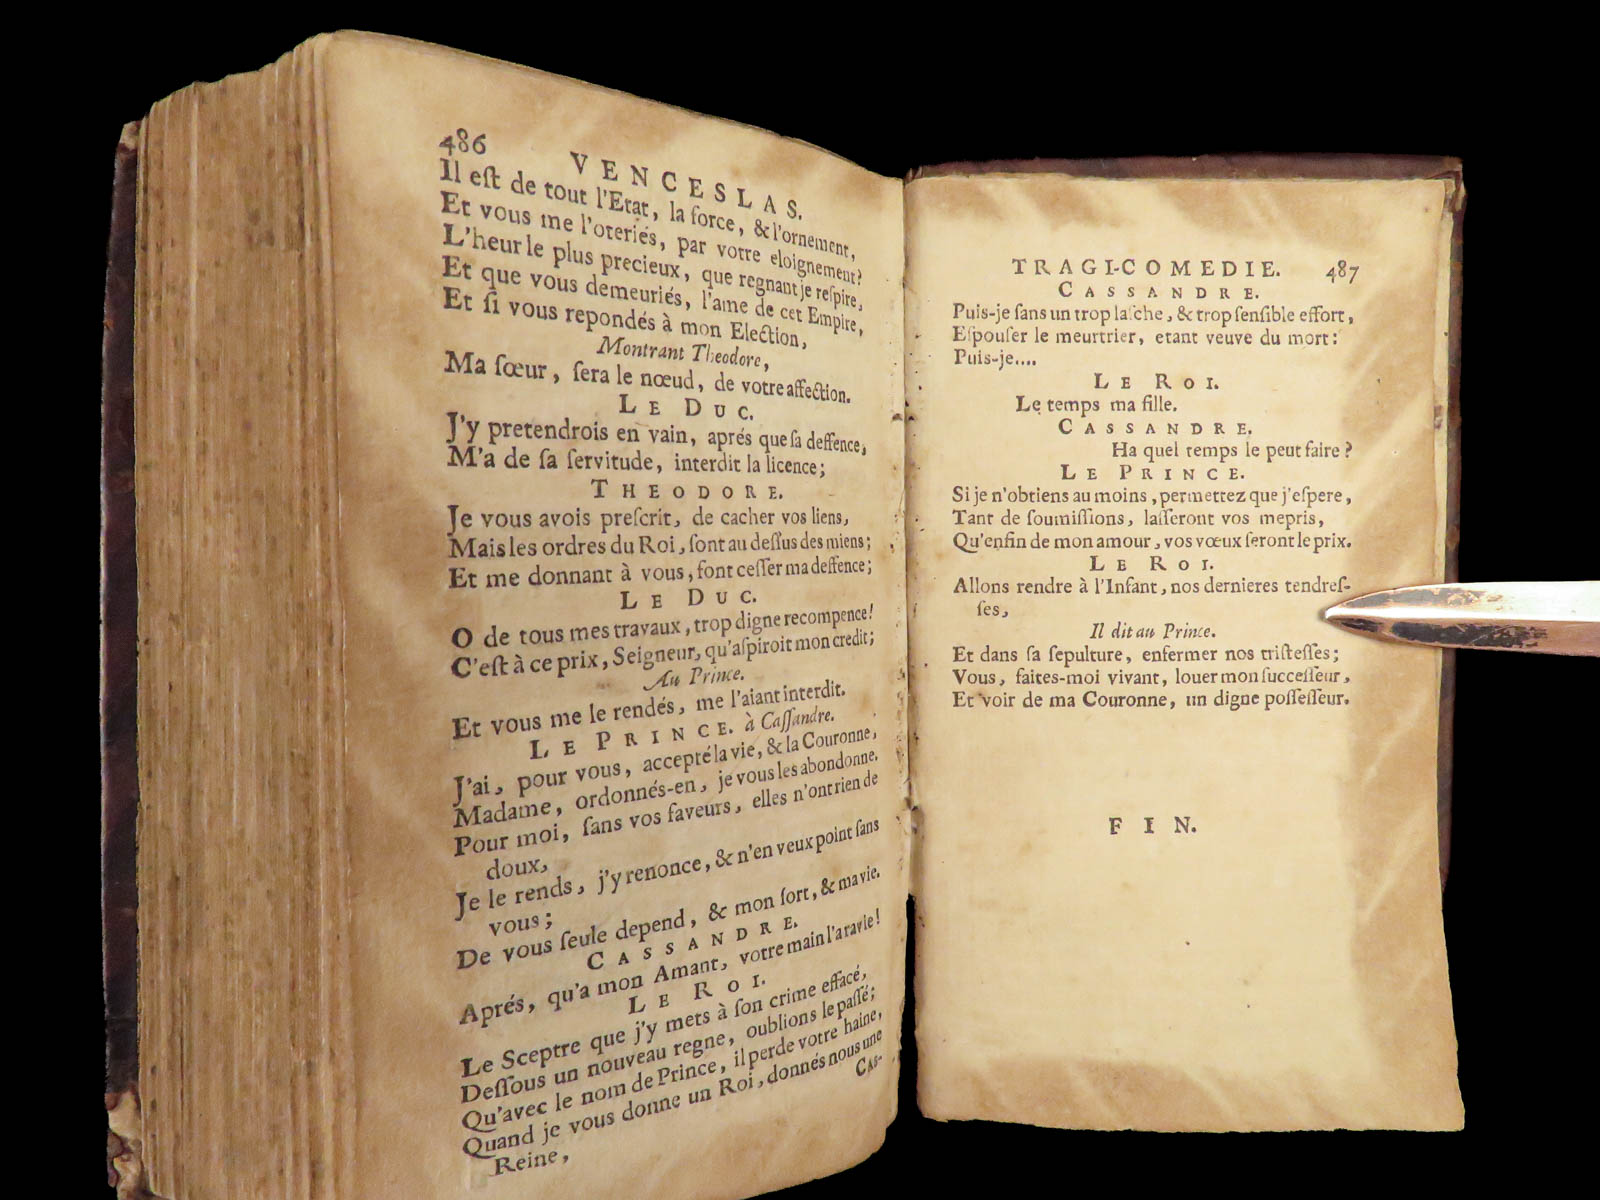 486 VENCESLAS.
Il eſt de tout l'Etat, la force, & l'ornement,
Et vous me l'oteriés, par votre eloignement?
L'heur le plus precieux, que regnant je reſpire,
Et que vous demeuriés, l'ame de cet Empire,
Et ſi vous repondés à mon Election,
Montrant Theodore,
Ma ſœur, ſera le nœud, de votre affection.
LE DUC.
J'y pretendrois en vain, aprés que ſa deffence,
M'a de ſa ſervitude, interdit la licence;
THEODORE.
Je vous avois preſcrit, de cacher vos liens,
Mais les ordres du Roi, ſont au deſſus des miens;
Et me donnant à vous, font ceſſer ma deffence;
LE DUC.
O de tous mes travaux, trop digne recompence!
C'eſt à ce prix, Seigneur, qu'aſpiroit mon credit;
Au Prince.
Et vous me le rendés, me l'aiant interdit.
LE PRINCE. à Caſſandre.
J'ai, pour vous, accepté la vie, & la Couronne,
Madame, ordonnés-en, je vous les abondonne.
Pour moi, ſans vos faveurs, elles n'ont rien de
doux,
Je le rends, j'y renonce, & n'en veux point ſans
vous;
De vous ſeule depend, & mon ſort, & ma vie.
CASSANDRE.
Aprés, qu'a mon Amant, votre main l'a ravie!
LE ROI.
Le Sceptre que j'y mets à ſon crime effacé,
Deſſous un nouveau regne, oublions le paſſé;
Qu'avec le nom de Prince, il perde votre haine,
Quand je vous donne un Roi, donnés nous une
Reine,
CAS-
TRAGI-COMEDIE. 487
CASSANDRE.
Puis-je ſans un trop laſche, & trop ſenſible effort,
Eſpouſer le meurtrier, etant veuve du mort:
Puis-je....
LE ROI.
Le temps ma fille.
CASSANDRE.
Ha quel temps le peut faire?
LE PRINCE.
Si je n'obtiens au moins, permettez que j'eſpere,
Tant de ſoumiſſions, laſſeront vos mepris,
Qu'enfin de mon amour, vos vœux ſeront le prix.
LE ROI.
Allons rendre à l'Infant, nos dernieres tendreſ-
ſes,
Il dit au Prince.
Et dans ſa ſepulture, enfermer nos triſteſſes;
Vous, faites-moi vivant, louer mon ſucceſſeur,
Et voir de ma Couronne, un digne poſſeſſeur.
FIN.